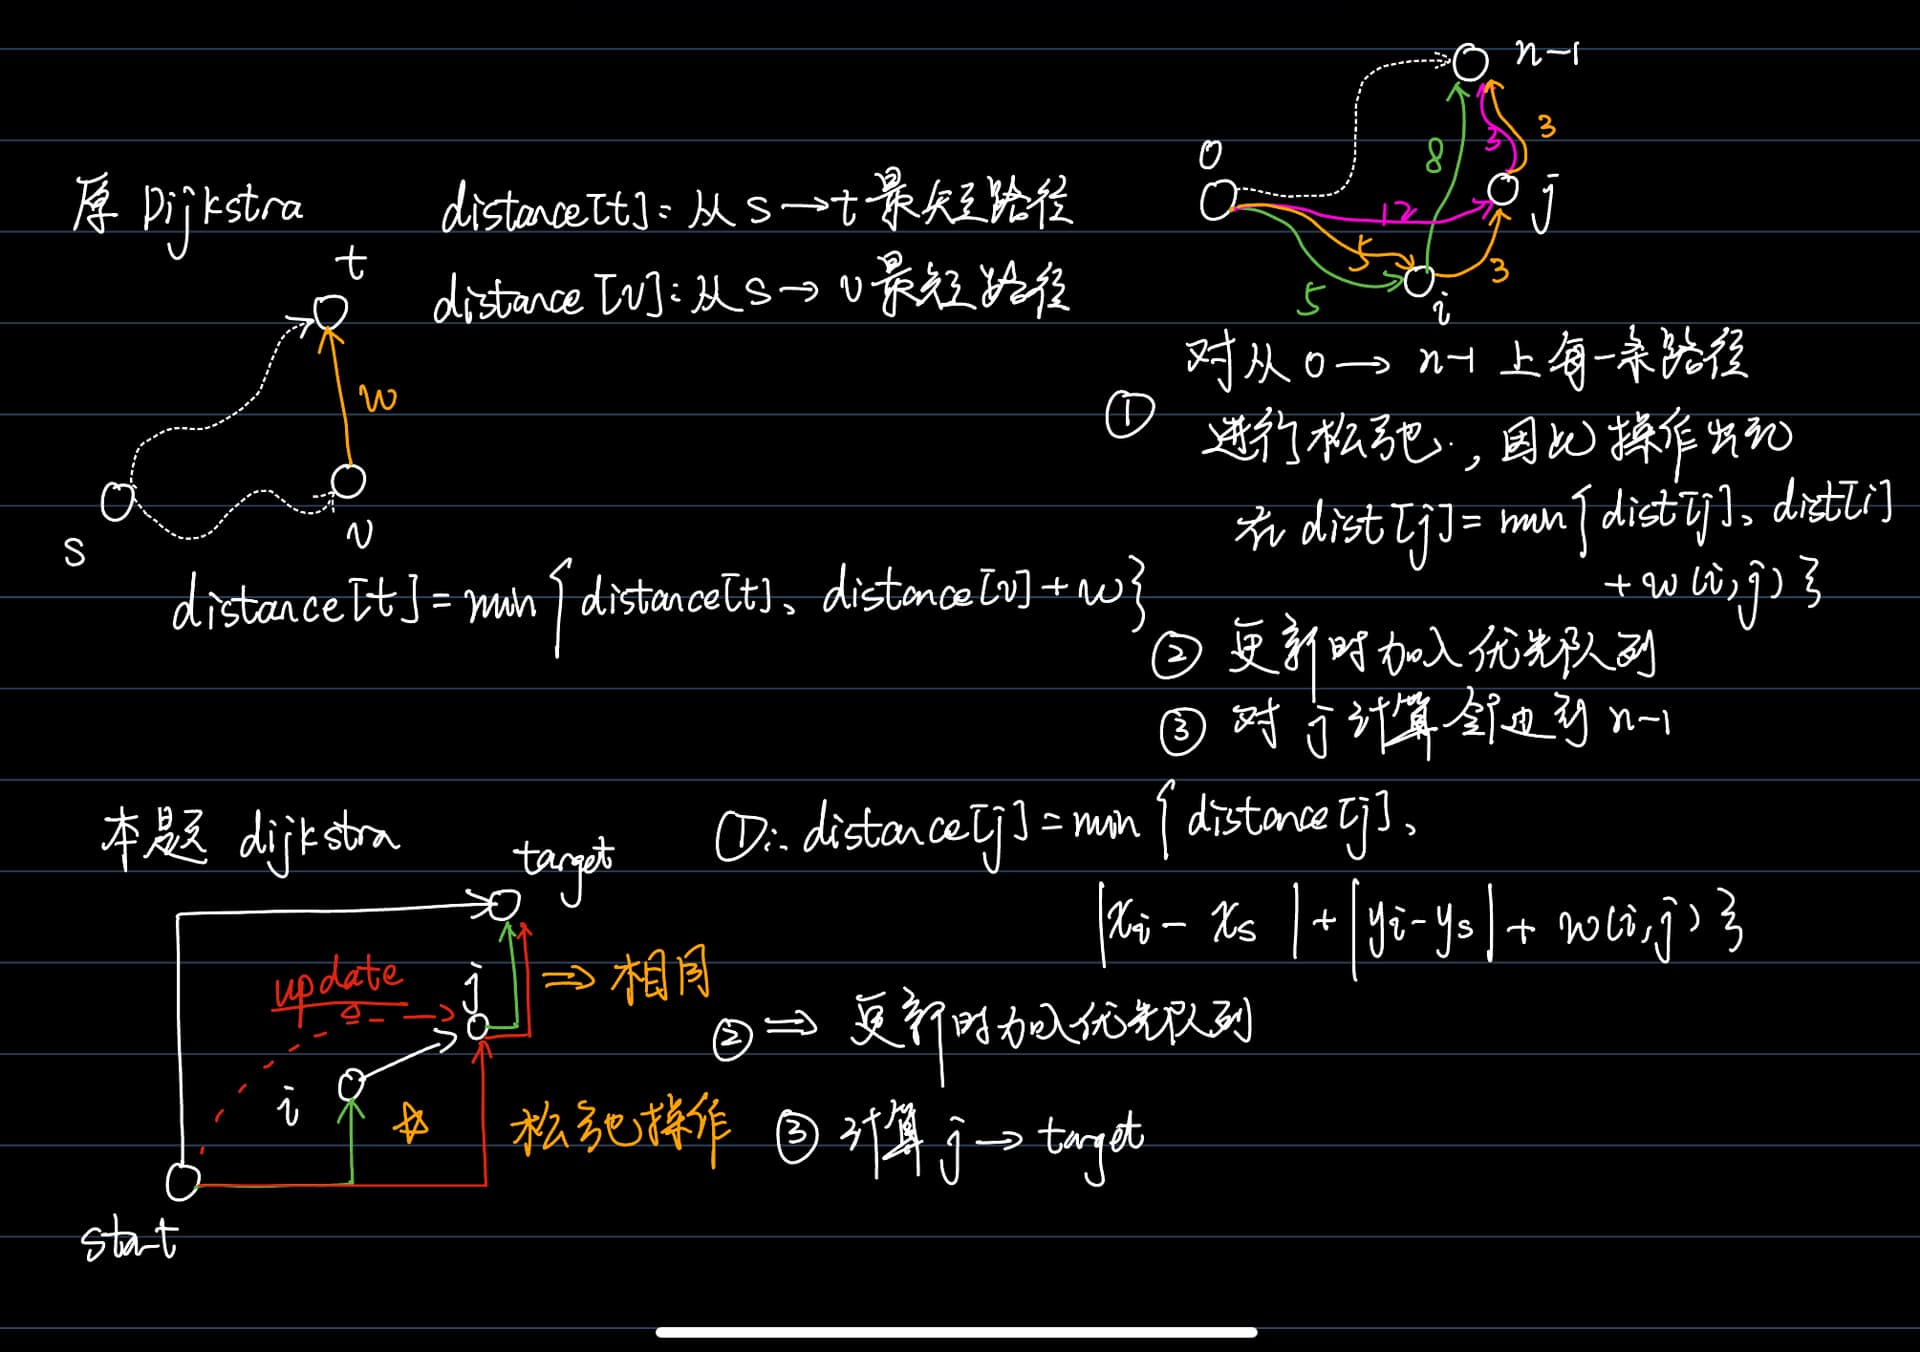 原 Dijkstra
distance[t]: 从 s → t 最短路径
distance[v]: 从 s → v 最短路径
t
w
s
v
distance[t] = min{ distance[t]、distance[v] + w }
n-1
0
3
3
8
j
12
5
5
3
i
① 对从 0 → n-1 上每一条路径
进行松弛，因此操作出现
在 dist[j] = min{ dist[j]、dist[i]
+ w(i,j) }
② 更新时加入优先队列
③ 对 j 计算邻边到 n-1
本题 dijkstra
target
update
j
⇒ 相同
i
☆
松弛操作
start
①∴ distance[j] = min{ distance[j]、
|xi - xs| + |yi - ys| + w(i,j) }
② ⇒ 更新时加入优先队列
③ 计算 j → target